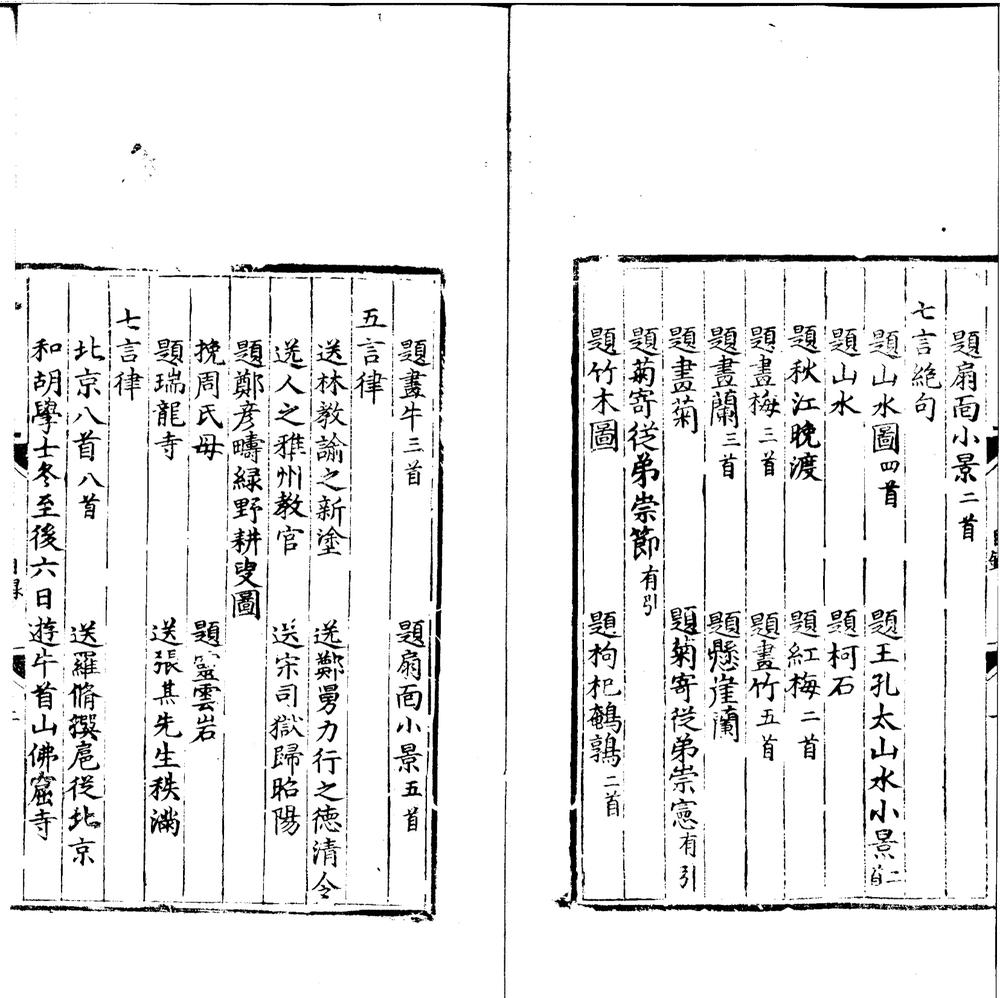 題扇面小景二首
七言絶句
題山水圖四首 題王孔太山水小景二首
題山水 題柯石
題秋江晚渡 題紅梅二首
題畫梅三首 題畫竹五首
題畫蘭三首 題懸崖蘭
題畫菊 題菊寄從弟崇憲有引
題菊寄從弟崇節有引
題竹木圖 題枸杞鵪鶉二首
題畫牛三首 題扇面小景五首
五言律
送林教諭之新塗 送鄭勇力行之德清令
送人之雅州教官 送宋司獄歸昭陽
題鄭彦疇緑野耕叟圖
挽周氏母 題靈雲岩
題瑞龍寺 送張其先生秩滿
七言律
北京八首八首 送羅脩撰扈從北京
和胡學士冬至後六日遊牛首山佛窟寺